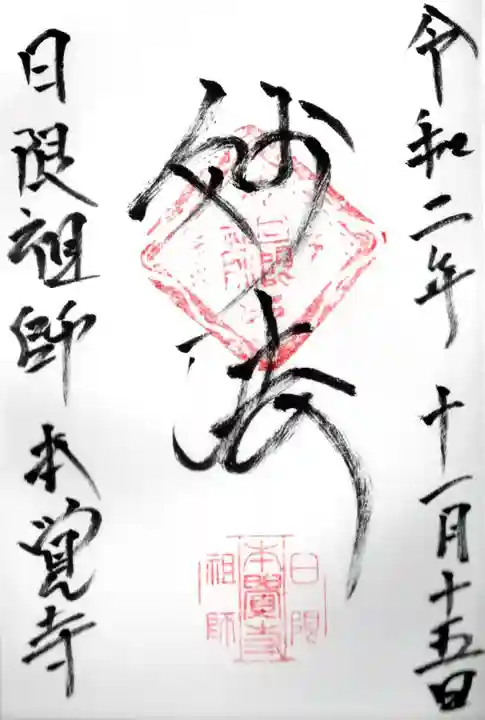 令和二年 十一月十五日
妙法
日限祖師 本覚寺
日限
本覺寺
祖師